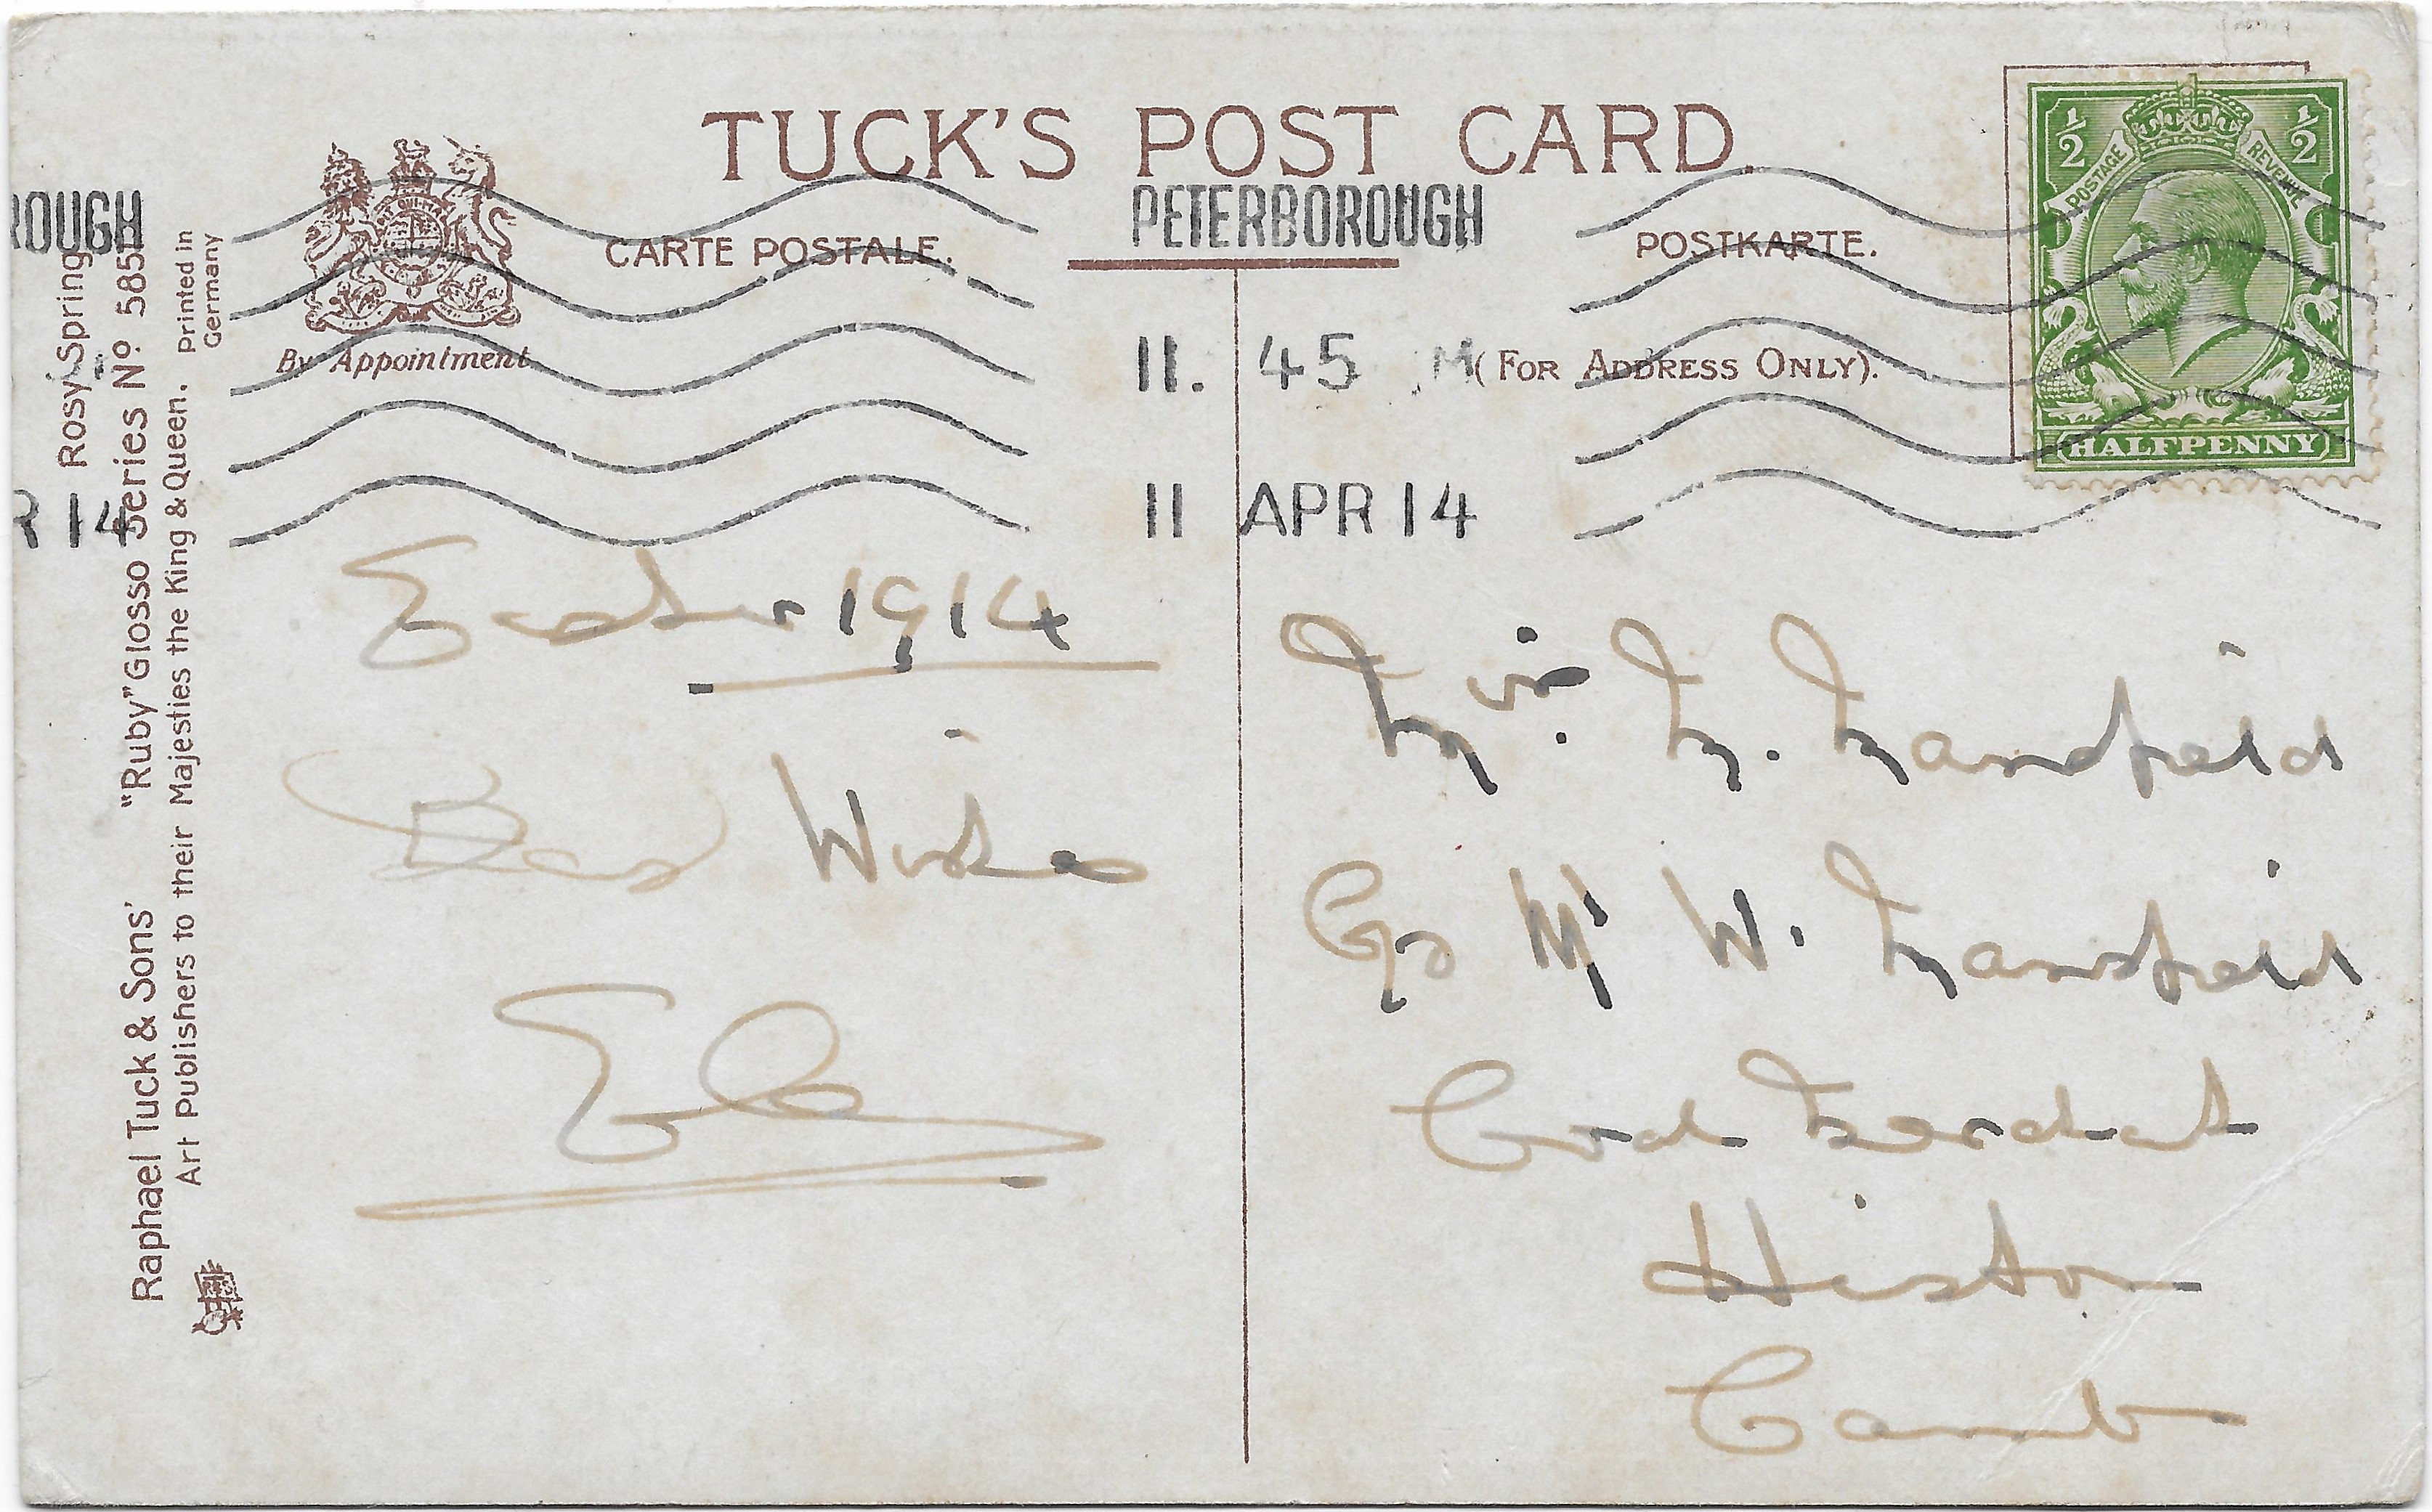 TUCK'S POST CARD.
CARTE POSTALE.
POSTKARTE.
By Appointment
(FOR ADDRESS ONLY).
½ ½
POSTAGE REVENUE
HALFPENNY
PETERBOROUGH
11. 45 M
11 APR 14
ROUGH
R 14
Rosy Spring
Raphael Tuck & Sons' "Ruby" Glosso Series Nº 5851
Art Publishers to their Majesties the King & Queen. Printed in
Germany
Easter 1914
Best Wishes
Miss M. Mansfield
C/o Mr W. Mansfield
Coal Merchant
Histon
Camb